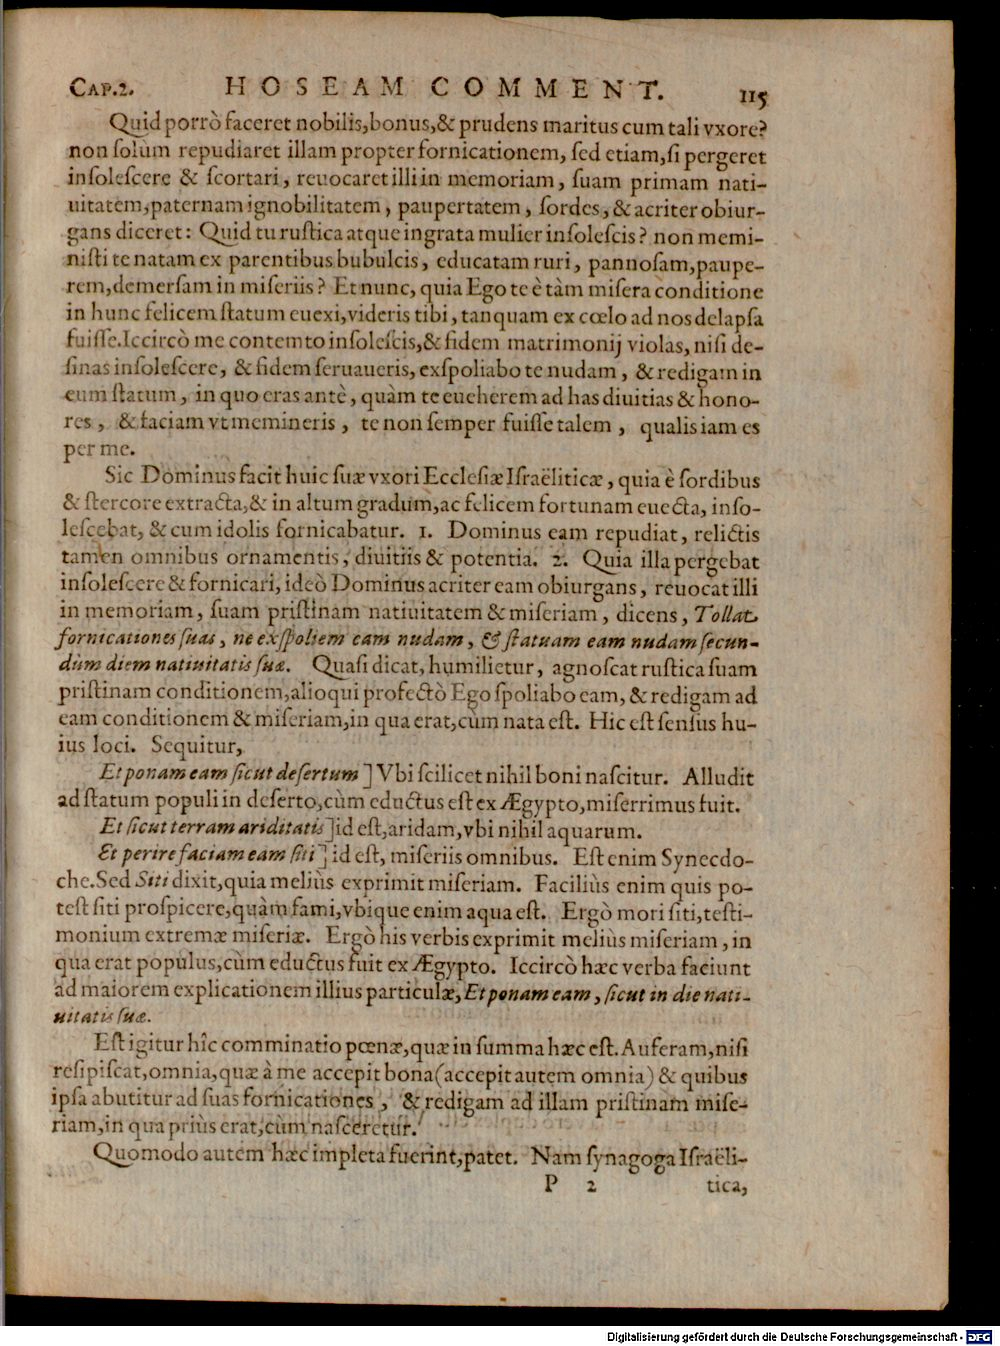 CAP.2. HOSEAM COMMENT. 115
Quid porrò faceret nobilis, bonus, & prudens maritus cum tali vxore?
non solùm repudiaret illam propter fornicationem, sed etiam, si pergeret
insolescere & scortari, reuocaret illi in memoriam, suam primam nati-
uitatem, paternam ignobilitatem, paupertatem, sordes, & acriter obiur-
gans diceret: Quid tu rustica atque ingrata mulier insolescis? non memi-
nisti te natam ex parentibus bubulcis, educatam ruri, pannosam, paupe-
rem, demersam in miseriis? Et nunc, quia Ego te è tàm misera conditione
in hunc felicem statum euexi, videris tibi, tanquam ex cœlo ad nos delapsa
fuisse. Iccircò me contemto insolescis, & fidem matrimonij violas, nisi de-
sinas insolescere, & fidem seruaueris, exspoliabo te nudam, & redigam in
eum statum, in quo eras antè, quàm te eueherem ad has diuitias & hono-
res, & faciam vt memineris, te non semper fuisse talem, qualis iam es
per me.
Sic Dominus facit huic suæ vxori Ecclesiæ Israëliticæ, quia è sordibus
& stercore extracta, & in altum gradum, ac felicem fortunam euecta, inso-
lescebat, & cum idolis fornicabatur. 1. Dominus eam repudiat, relictis
tamen omnibus ornamentis, diuitiis & potentia. 2. Quia illa pergebat
insolescere & fornicari, ideò Dominus acriter eam obiurgans, reuocat illi
in memoriam, suam pristinam natiuitatem & miseriam, dicens, Tollat
fornicationes suas, ne exspoliem eam nudam, & statuam eam nudam secun-
dùm diem natiuitatis suæ. Quasi dicat, humilietur, agnoscat rustica suam
pristinam conditionem, alioqui profectò Ego spoliabo eam, & redigam ad
eam conditionem & miseriam, in qua erat, cùm nata est. Hic est sensus hu-
ius loci. Sequitur,
Et ponam eam sicut desertum] Vbi scilicet nihil boni nascitur. Alludit
ad statum populi in deserto, cùm eductus est ex Ægypto, miserrimus fuit.
Et sicut terram ariditatis] id est, aridam, vbi nihil aquarum.
Et perire faciam eam siti] id est, miseriis omnibus. Est enim Synecdo-
che. Sed Siti dixit, quia meliùs exprimit miseriam. Faciliùs enim quis po-
test siti prospicere, quàm fami, vbique enim aqua est. Ergò mori siti, testi-
monium extremæ miseriæ. Ergò his verbis exprimit meliùs miseriam, in
qua erat populus, cùm eductus fuit ex Ægypto. Iccircò hæc verba faciunt
ad maiorem explicationem illius particulæ, Et ponam eam, sicut in die nati-
uitatis suæ.
Est igitur hîc comminatio pœnæ, quæ in summa hæc est. Auferam, nisi
resipiscat, omnia, quæ à me accepit bona (accepit autem omnia) & quibus
ipsa abutitur ad suas fornicationes, & redigam ad illam pristinam mise-
riam, in qua priùs erat, cùm nasceretur.
Quomodo autem hæc impleta fuerint, patet. Nam synagoga Israëli-
P 2 tica,
Digitalisierung gefördert durch die Deutsche Forschungsgemeinschaft - DFG